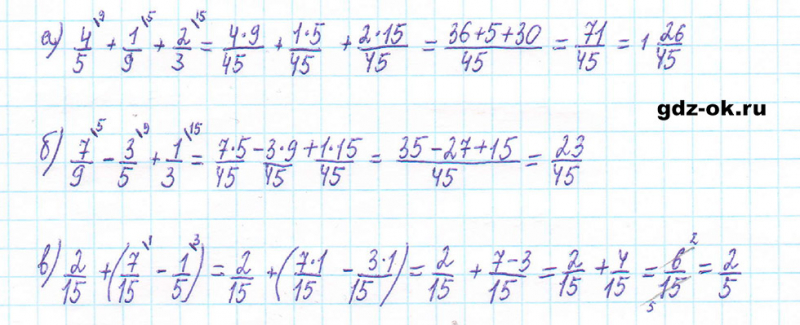 а) 4/5 \9 + 1/9 \5 + 2/3 \15 = 4·9/45 + 1·5/45 + 2·15/45 = 36+5+30/45 = 71/45 = 1 26/45
gdz-ok.ru
б) 7/9 \5 - 3/5 \9 + 1/3 \15 = 7·5/45 - 3·9/45 + 1·15/45 = 35-27+15/45 = 23/45
в) 2/15 + (7/15 \1 - 1/5 \3) = 2/15 + (7·1/15 - 3·1/15) = 2/15 + 7-3/15 = 2/15 + 4/15 = 6/15 2 5 = 2/5